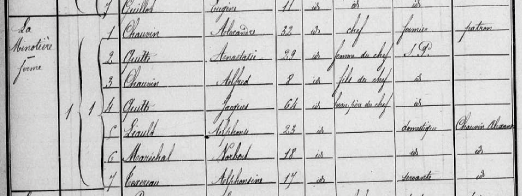 7 Eugène 11 id id id
La Minotière ferme
1 1
1 Chauvin Alexandre 32 id chef fermier patron
2 Anastasie 29 id femme du chef S.P.
3 Chauvin Alfred 8 id fils du chef id
4 Jacques 64 id beau-père du chef id
5 Alphonse 23 id domestique Chauvin
6 Maréchal Norbert 18 id id id
7 Alphonsine 17 id servante id